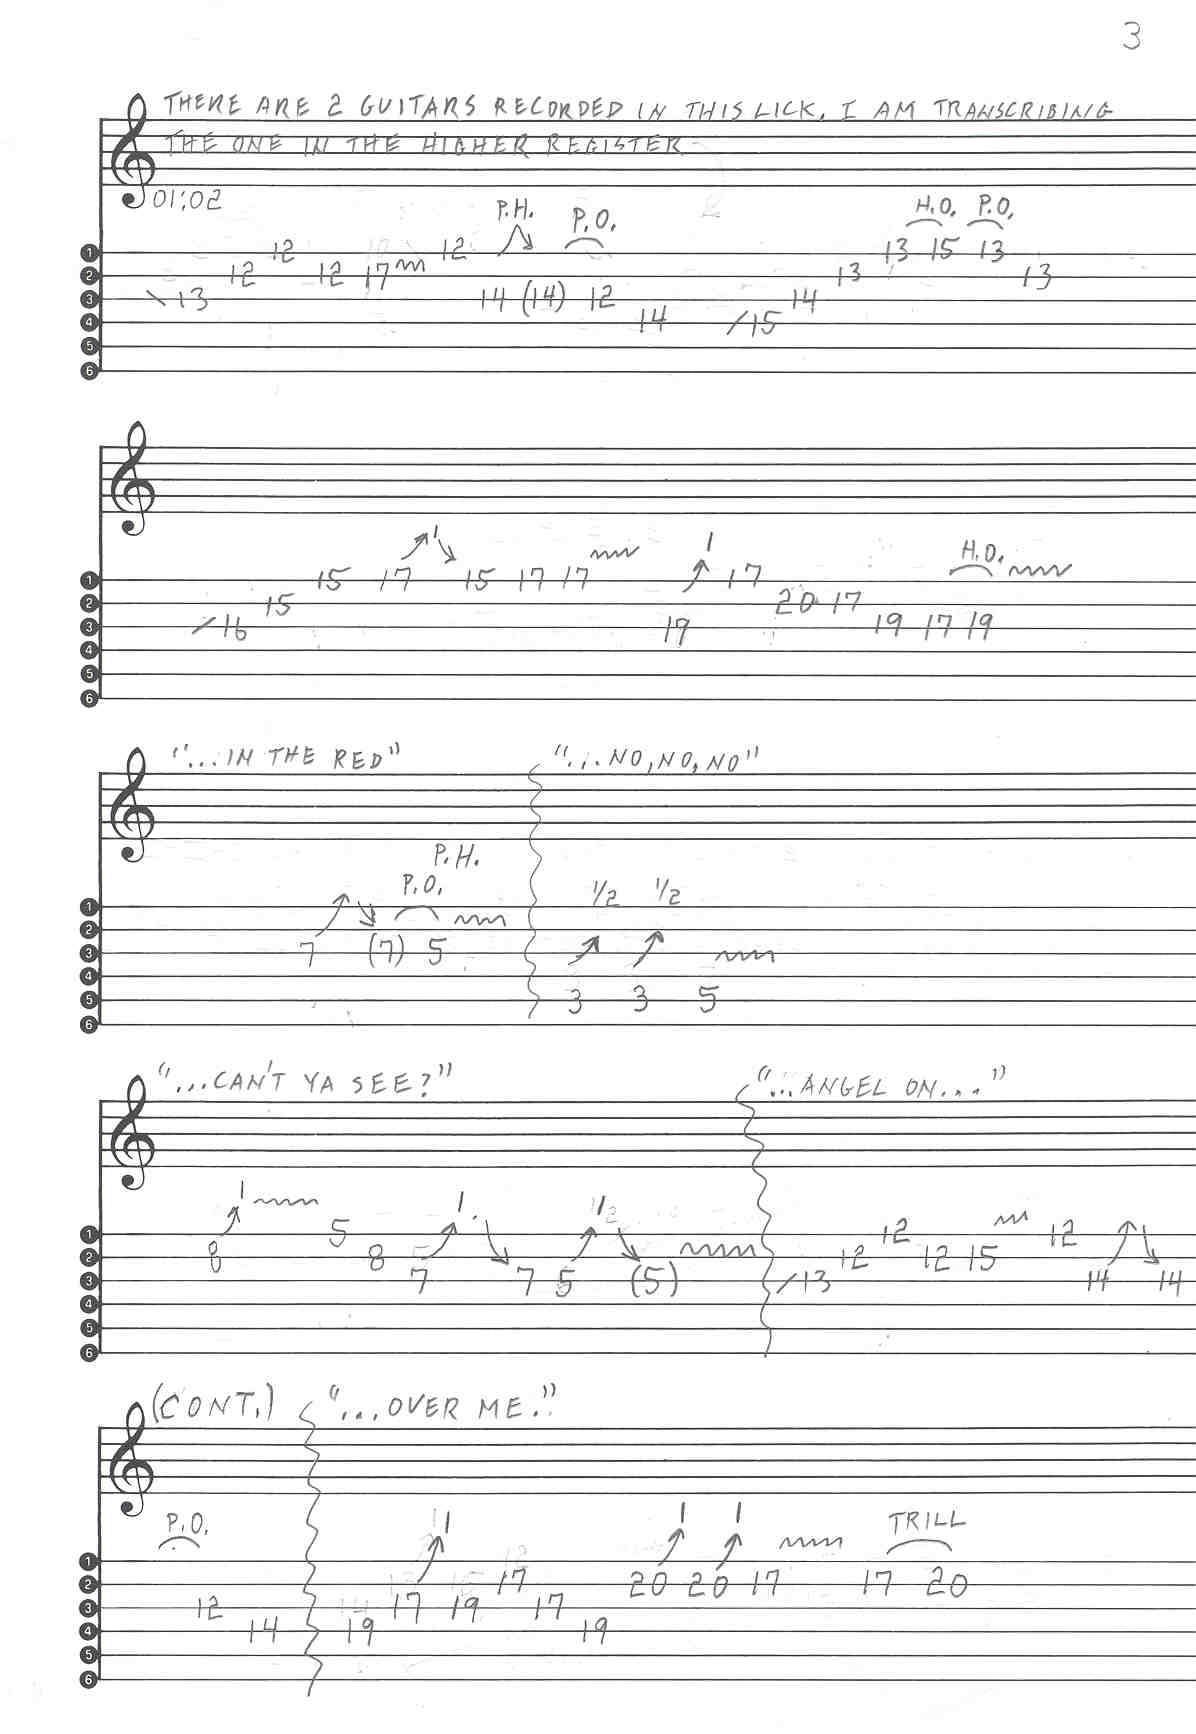 3
THERE ARE 2 GUITARS RECORDED IN THIS LICK. I AM TRANSCRIBING
THE ONE IN THE HIGHER REGISTER
01:02
P.H. P.O. H.O. P.O.
1 12 12 13 15 13
2 12 12 17 13 13
3 \13 14 (14) 12 14
4 14 /15
5
6
1 1
H.O.
1 15 17 15 17 17 17
2 15 20 17
3 /16 19 19 17 19
4
5
6
"...IN THE RED" "...NO, NO, NO"
P.H.
P.O. 1/2 1/2
1
2
3 7 (7) 5
4
5 3 3 5
6
"...CAN'T YA SEE?" "...ANGEL ON..."
1 1 1/2
1 5 12 12
2 8 8 12 12 15
3 7 7 5 (5) /13 14 14
4
5
6
(CONT.) "...OVER ME."
P.O. 1 1 1 TRILL
1
2 17 20 20 17 17 20
3 12 17 19 17
4 14 19 19
5
6